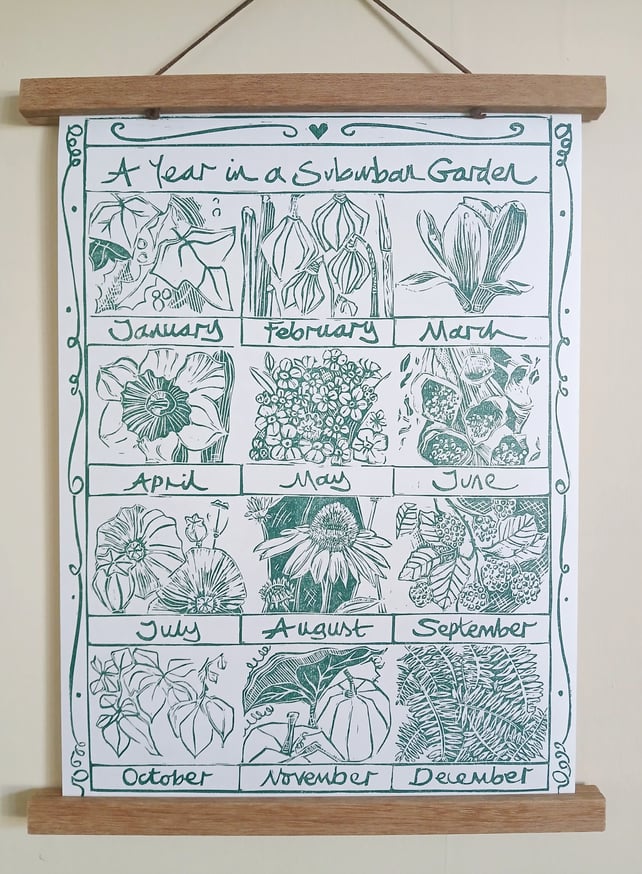 A Year in a Suburban Garden
January February March
April May June
July August September
October November December